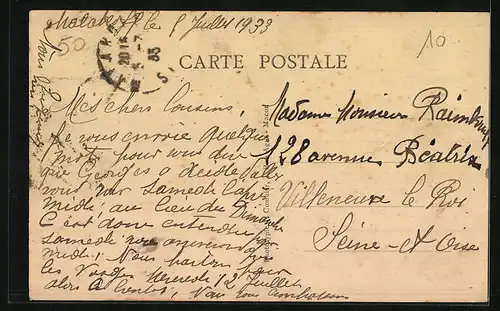 le 5 Juillet 1933
50
10
CARTE POSTALE
Mes chers Cousins,
Je vous envoie quelques
mots pour vous dire
que Georges a décidé d'aller
vous voir samedi après
midi, au lieu du Dimanche
C'est donc entendu pour
samedi nous arriverons
midi, Nous partons pour
les Vosges Mercredi 12 Juillet
alors à bientôt, Nous vous embrassons
Madame Monsieur
128 avenue Béatrix
Villeneuve le Roi
Seine-et-Oise